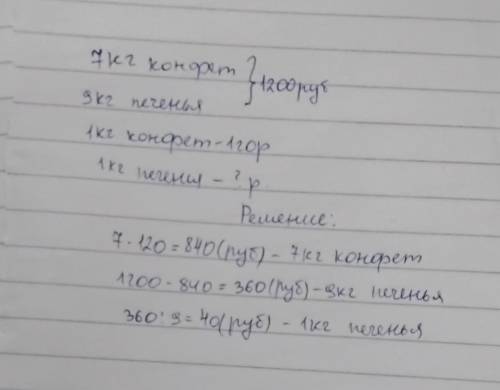 7кг конфет } 1200руб
9кг печенья
1кг конфет - 120р
1кг печенья - ? р.
Решение:
7 · 120 = 840(руб) - 7кг конфет
1200 - 840 = 360(руб) - 9кг печенья
360 : 9 = 40(руб) - 1кг печенья